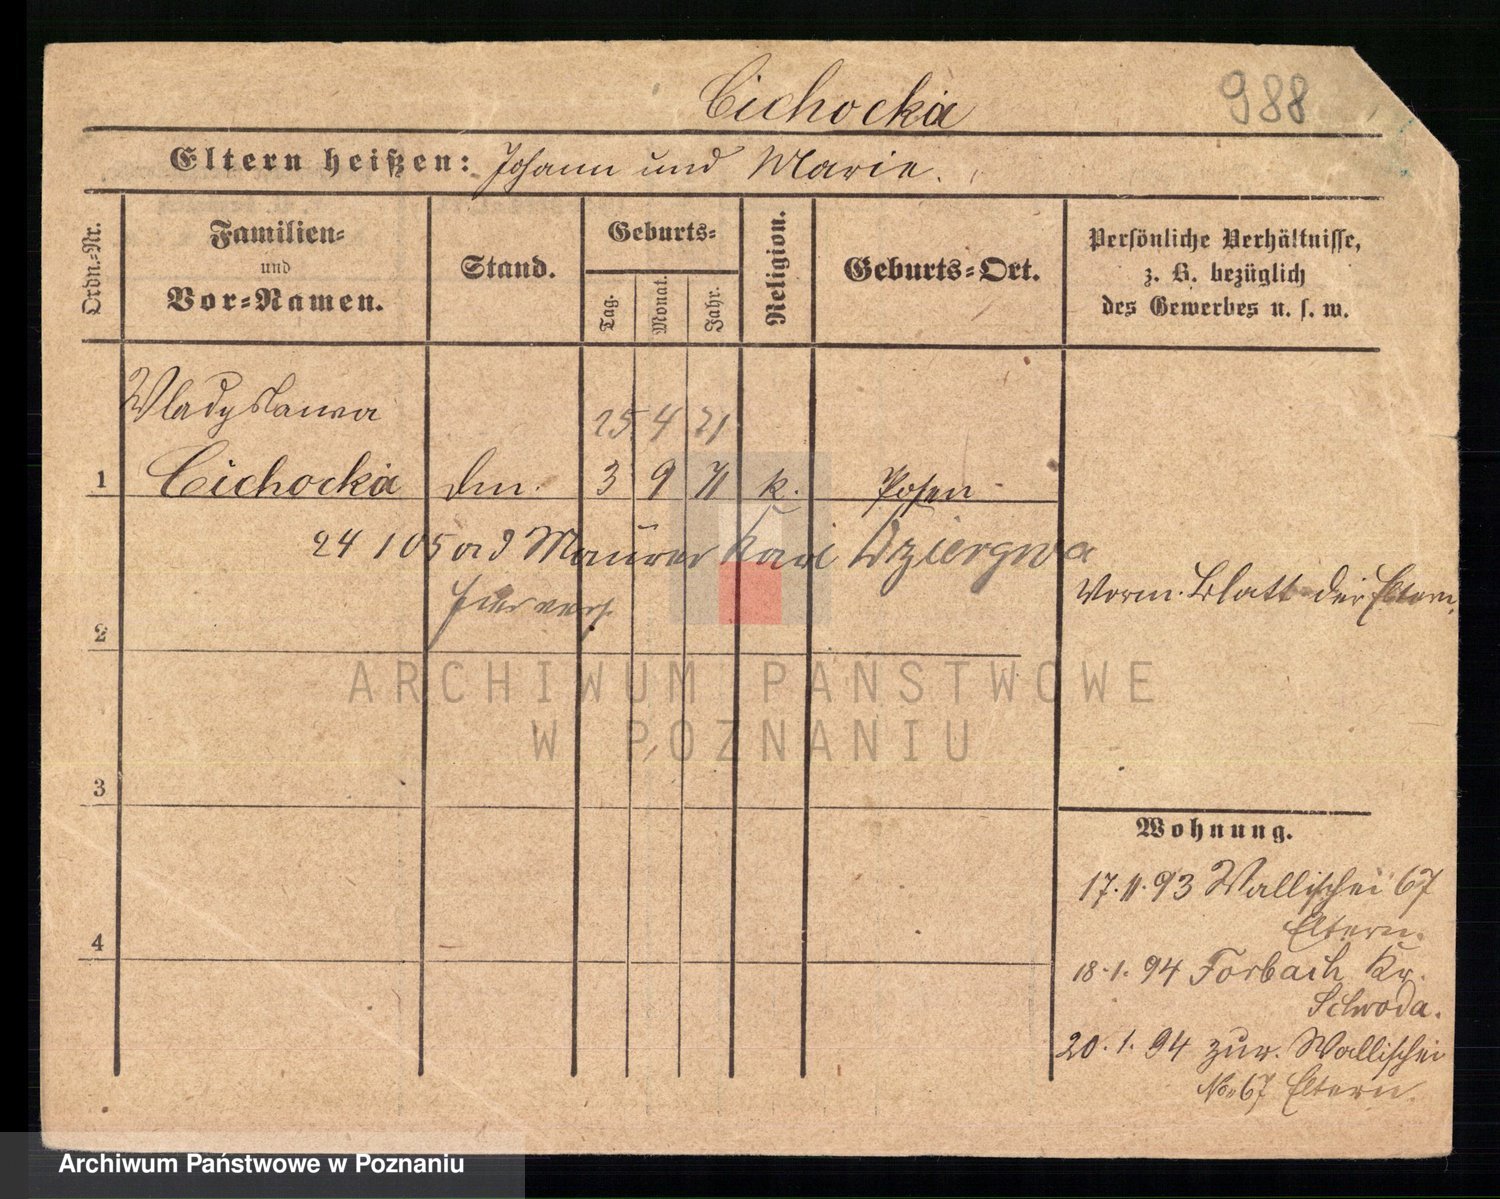 Cichocka
988
Eltern heißen: Johann und Marie.
Ordn.-Nr.
Familien-
und
Vor-Namen.
Stand.
Geburts-
Tag.
Monat.
Jahr.
Religion.
Geburts-Ort.
Persönliche Verhältnisse,
z. B. bezüglich
des Gewerbes u. s. w.
Wladyslawa
25 4 71
1 Cichocka 3 9 71 k. Posen
24 1 05 Maurer Karl Dziergwa
Vorm. Blatt der Eltern.
2
ARCHIWUM PAŃSTWOWE
W POZNANIU
3
Wohnung.
17.11.93 Wallischei 67
Eltern.
4
18.1.94 Forbach Kr.
Schroda.
20.1.94 zur. Wallischei
No 67 Eltern.
Archiwum Państwowe w Poznaniu